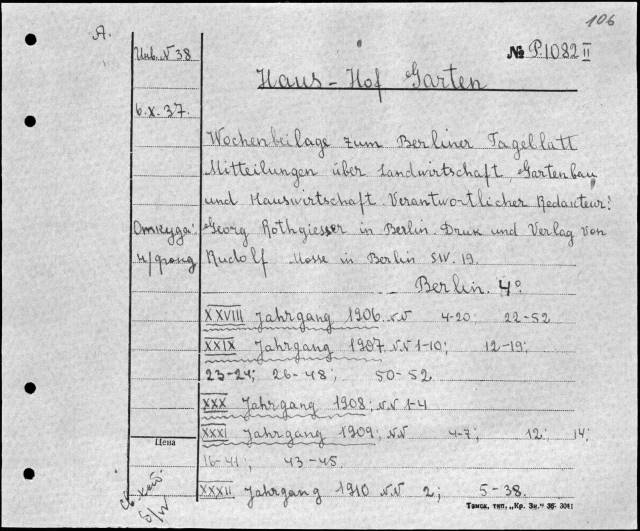 106
А.
Инв. № 38
№ P.1082 II
Haus - Hof Garten
6.X.37.
Wochenbeilage zum Berliner Tageblatt
Mitteilungen über Landwirtschaft, Gartenbau
und Hauswirtschaft Verantwortlicher Redakteur:
Откуда:
Georg Rothgiesser in Berlin. Druk und Verlag von
н/фонд
Rudolf Mosse in Berlin SW. 19.
Berlin. 4°
XXVIII Jahrgang 1906. NN 4-20; 22-52
XXIX Jahrgang 1907. NN 1-10; 12-19;
23-24; 26-48; 50-52
XXX Jahrgang 1908; NN 1-4
XXXI Jahrgang 1909; NN 4-7; 12; 14;
Цена
16-41; 43-45.
XXXII Jahrgang 1910 NN 2; 5-38.
б/ц
Томск, тип. „Кр. Зн." 36- 3041